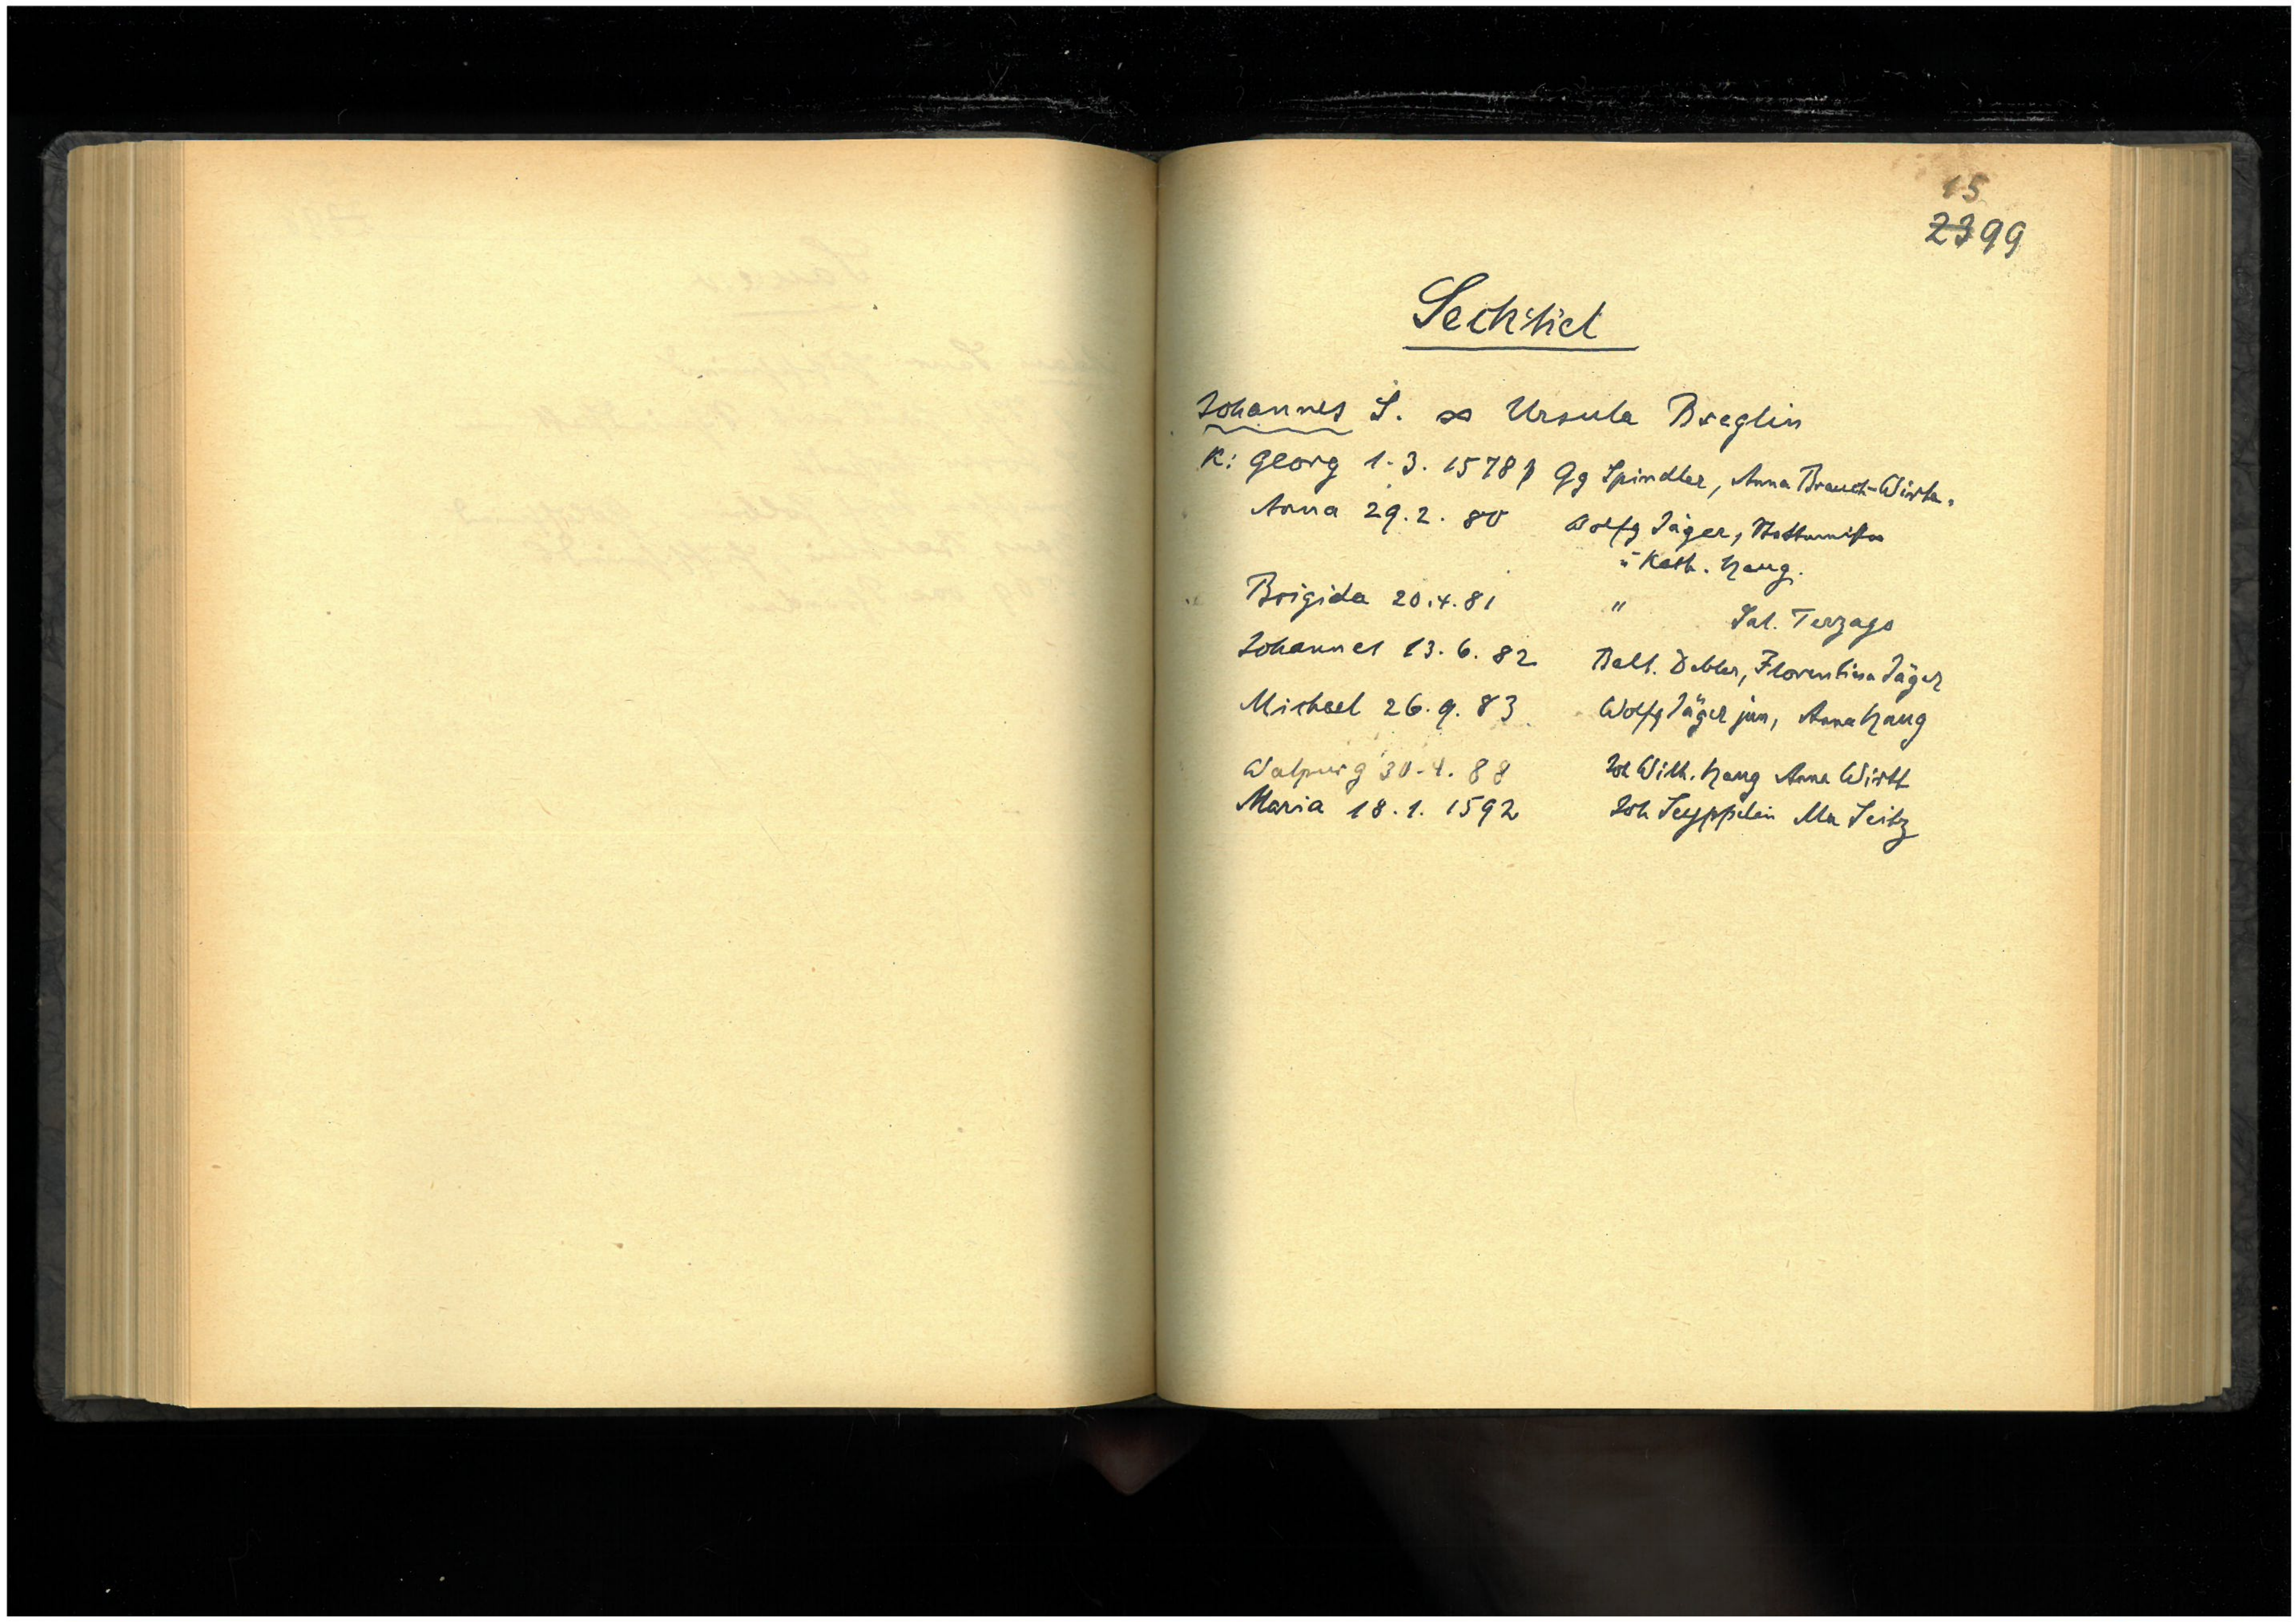 15
2399
Seckstiel
Johannes S. ∞ Ursula Breglin
K: Georg 1.3.1578 Gg Spindler, Anna Brauch-Wirtin.
Anna 29.2.80 Wolfg Jäger,
u Kath. Haug.
Brigida 20.4.81 " Sal. Terzago
Johannes 13.6.82 Balt. Debler, Florentina Jäger
Michael 26.9.83 Wolfg Jäger jun, Anna Haug
Walpurg 30.4.88 Joh Wilh. Haug Anna Wirtt
Maria 18.1.1592 Joh Seyppelin Ma Seitz